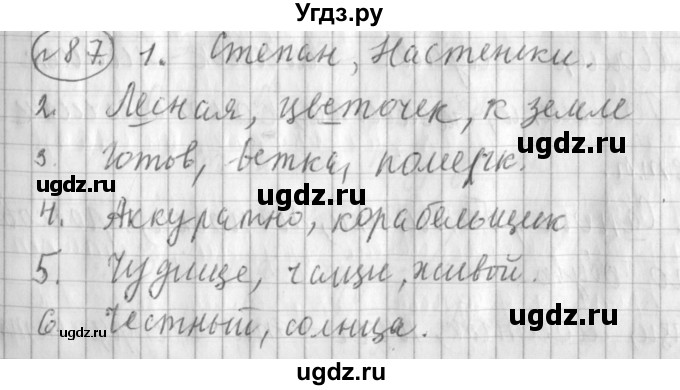 Угдз.ру
№87. 1. Степан, Настеньки.
2. Лесная, цветочек, к земле
3. Готов, ветка, померк.
4. Аккуратно, корабельщик
5. Чудище, чащи, живой.
6. Честный, солнца.
ugdz.ru
ugdz.ru
ugdz.ru
ugdz.ru
ugdz.ru
ugdz.ru
ugdz.ru
ugdz.ru
ugdz.ru